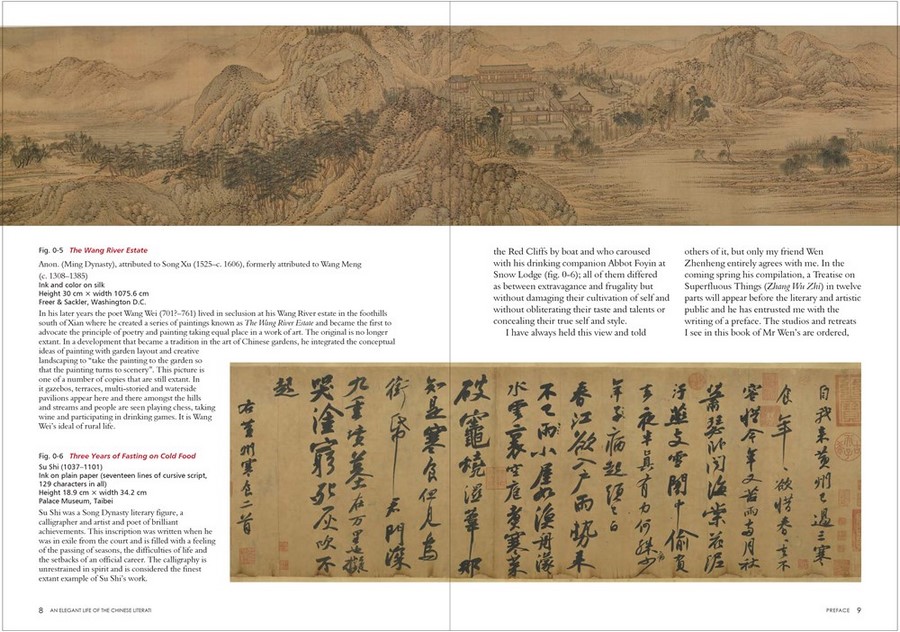 Fig. 0-5 The Wang River Estate
Anon. (Ming Dynasty), attributed to Song Xu (1525–c. 1606), formerly attributed to Wang Meng
(c. 1308–1385)
Ink and color on silk
Height 30 cm × width 1075.6 cm
Freer & Sackler, Washington D.C.
In his later years the poet Wang Wei (701?–761) lived in seclusion at his Wang River estate in the foothills
south of Xian where he created a series of paintings known as The Wang River Estate and became the first to
advocate the principle of poetry and painting taking equal place in a work of art. The original is no longer
extant. In a development that became a tradition in the art of Chinese gardens, he integrated the conceptual
ideas of painting with garden layout and creative
landscaping to “take the painting to the garden so
that the painting turns to scenery”. This picture is
one of a number of copies that are still extant. In
it gazebos, terraces, multi-storied and waterside
pavilions appear here and there amongst the hills
and streams and people are seen playing chess, taking
wine and participating in drinking games. It is Wang
Wei’s ideal of rural life.
Fig. 0-6 Three Years of Fasting on Cold Food
Su Shi (1037–1101)
Ink on plain paper (seventeen lines of cursive script,
129 characters in all)
Height 18.9 cm × width 34.2 cm
Palace Museum, Taibei
Su Shi was a Song Dynasty literary figure, a
calligrapher and artist and poet of brilliant
achievements. This inscription was written when he
was in exile from the court and is filled with a feeling
of the passing of seasons, the difficulties of life and
the setbacks of an official career. The calligraphy is
unrestrained in spirit and is considered the finest
extant example of Su Shi’s work.
8 AN ELEGANT LIFE OF THE CHINESE LITERATI
the Red Cliffs by boat and who caroused
with his drinking companion Abbot Foyin at
Snow Lodge (fig. 0–6); all of them differed
as between extravagance and frugality but
without damaging their cultivation of self and
without obliterating their taste and talents or
concealing their true self and style.
I have always held this view and told
others of it, but only my friend Wen
Zhenheng entirely agrees with me. In the
coming spring his compilation, a Treatise on
Superfluous Things (Zhang Wu Zhi) in twelve
parts will appear before the literary and artistic
public and he has entrusted me with the
writing of a preface. The studios and retreats
I see in this book of Mr Wen’s are ordered,
自我来黄州已過三寒
食年〻欲惜春春去不
容惜今年又苦雨兩月秋
蕭瑟卧聞海棠花泥
汙燕支雪闇中偷負
去夜半真有力何殊少
年子病起頭已白
春江欲入戶雨勢来
不已雨小屋如漁舟濛〻
水雲裏空庖煮寒菜
破竈燒濕葦那
知是寒食但見烏
銜帋君門深
九重墳墓在万里也擬
哭塗窮死灰吹不
起
右黄州寒食二首
PREFACE 9